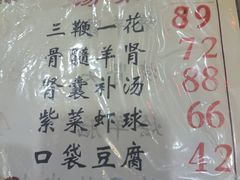 三鞭一花 89
骨髓羊肾 72
肾囊补汤 88
紫菜虾球 66
口袋豆腐 42